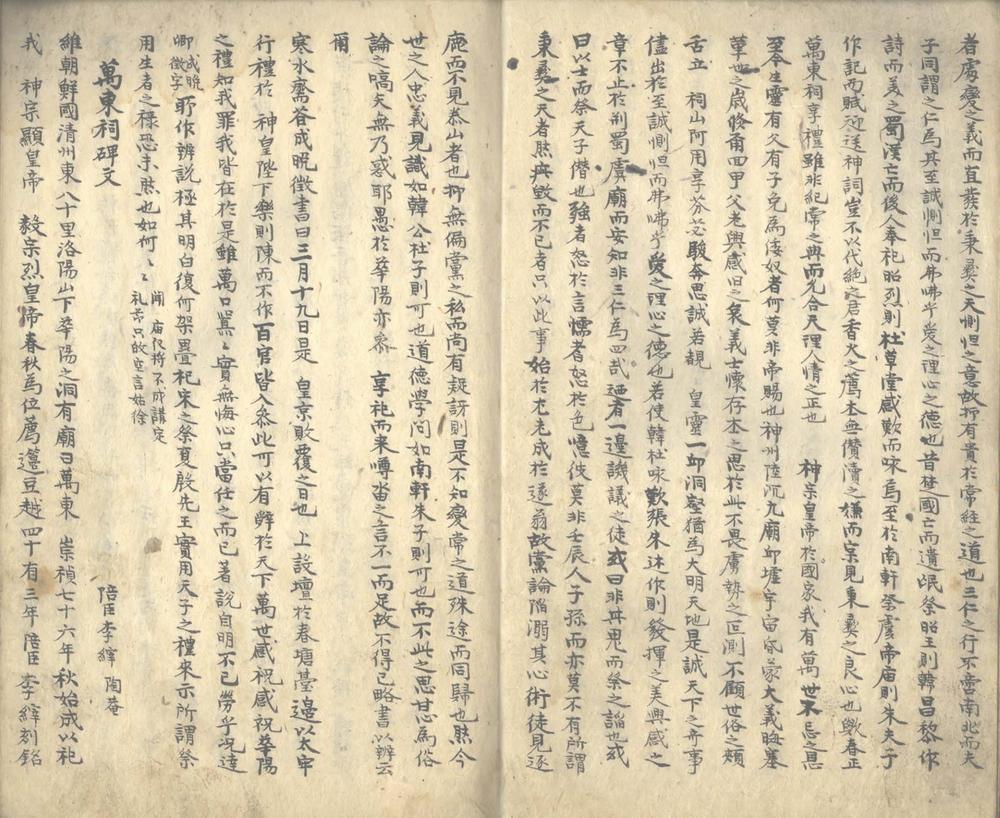 者處變之義而宜發於秉彝之天惻怛之意故抑有貴於常經之道也三仁之行不啻南北而夫
子同謂之仁為其至誠惻怛而弗咈乎愛之理心之德也昔楚國亡而遺氓祭昭王則韓昌黎作
詩而美之蜀漢亡而後人奉祀昭烈則杜草堂感歎而咏焉至於南軒祭虞帝庙則朱夫子
作記而賦迎送神詞豈不以代絶之君香火之薦本無僣瀆之嫌而宗見秉彝之良心也歟春正
萬東祠享禮雖非祀常之典而允合天理人情之正也 神宗皇帝於國家我有萬世不忘之恩
至今生靈有父有子免為倭奴者何莫非帝賜也神州陸沉九廟邱墟宇宙晦蒙大義晦塞
草 之歳倏甭四甲父老興感旧之哀義士懷存本之思於此不畏虜辨之叵測不顧世俗之頰
舌立 祠山阿用享芬苾駿奔思誠若覩 皇靈一邱洞壑猶為大明天地是誠天下之奇事
儘出於至誠惻怛而弗咈乎愛之理心之德也若使韓杜咏歎張朱述作則發揮之美興感之
章不止於荆蜀虞廟而安知非三仁為四哉廼有一邊譏議之徒或曰非其鬼而祭之謟也或
曰以士而祭天子僭也強者怒於言懦者怒於色噫彼莫非壬辰人子孫而亦莫不有所謂
秉彝之天者胀典毀而不已者只以此事始於尤老成於遂翁故黨論陷溺其心術徒見逐
鹿而不見泰山者也抑無偏黨之私而尚有疑訝則是不知變常之道殊途而同歸也胀今
世之人忠義見識如韓公杜子則可也道德學问如南軒朱子則可也而不此之思甘心為俗
論之嗃矢無乃惑耶愚於華陽亦忝 享祀而来噂沓之言不一而足故不得已略書以辨云
爾
寒水齋答成晩徵書曰三月十九日是 皇京敗覆之日也 上設壇於春塘臺邉以太牢
行禮於 神皇陛下樂則陳而不作百官皆入叅此可以有辭於天下萬世感祝感祝華陽
之禮知我罪我皆在於是雖萬口嚣〻實無悔心只當任之而已著説自明不已勞乎况達
卿成晩徵字所作辨説極其明白復何架疊祀宋之祭夏殷先王實用天子之禮來示所謂祭
用生者之禄恐未胀也如何〻〻
閒 庙仪将不成講定
礼云只的空言姑徐
萬東祠碑文
陪臣李縡 陶菴
維朝鮮國清州東八十里洛陽山下華陽之洞有廟曰萬東 崇禎七十六年秋始成以祀
我 神宗顯皇帝 毅宗烈皇帝春秋為位薦籩豆越四十有三年陪臣李縡刻銘